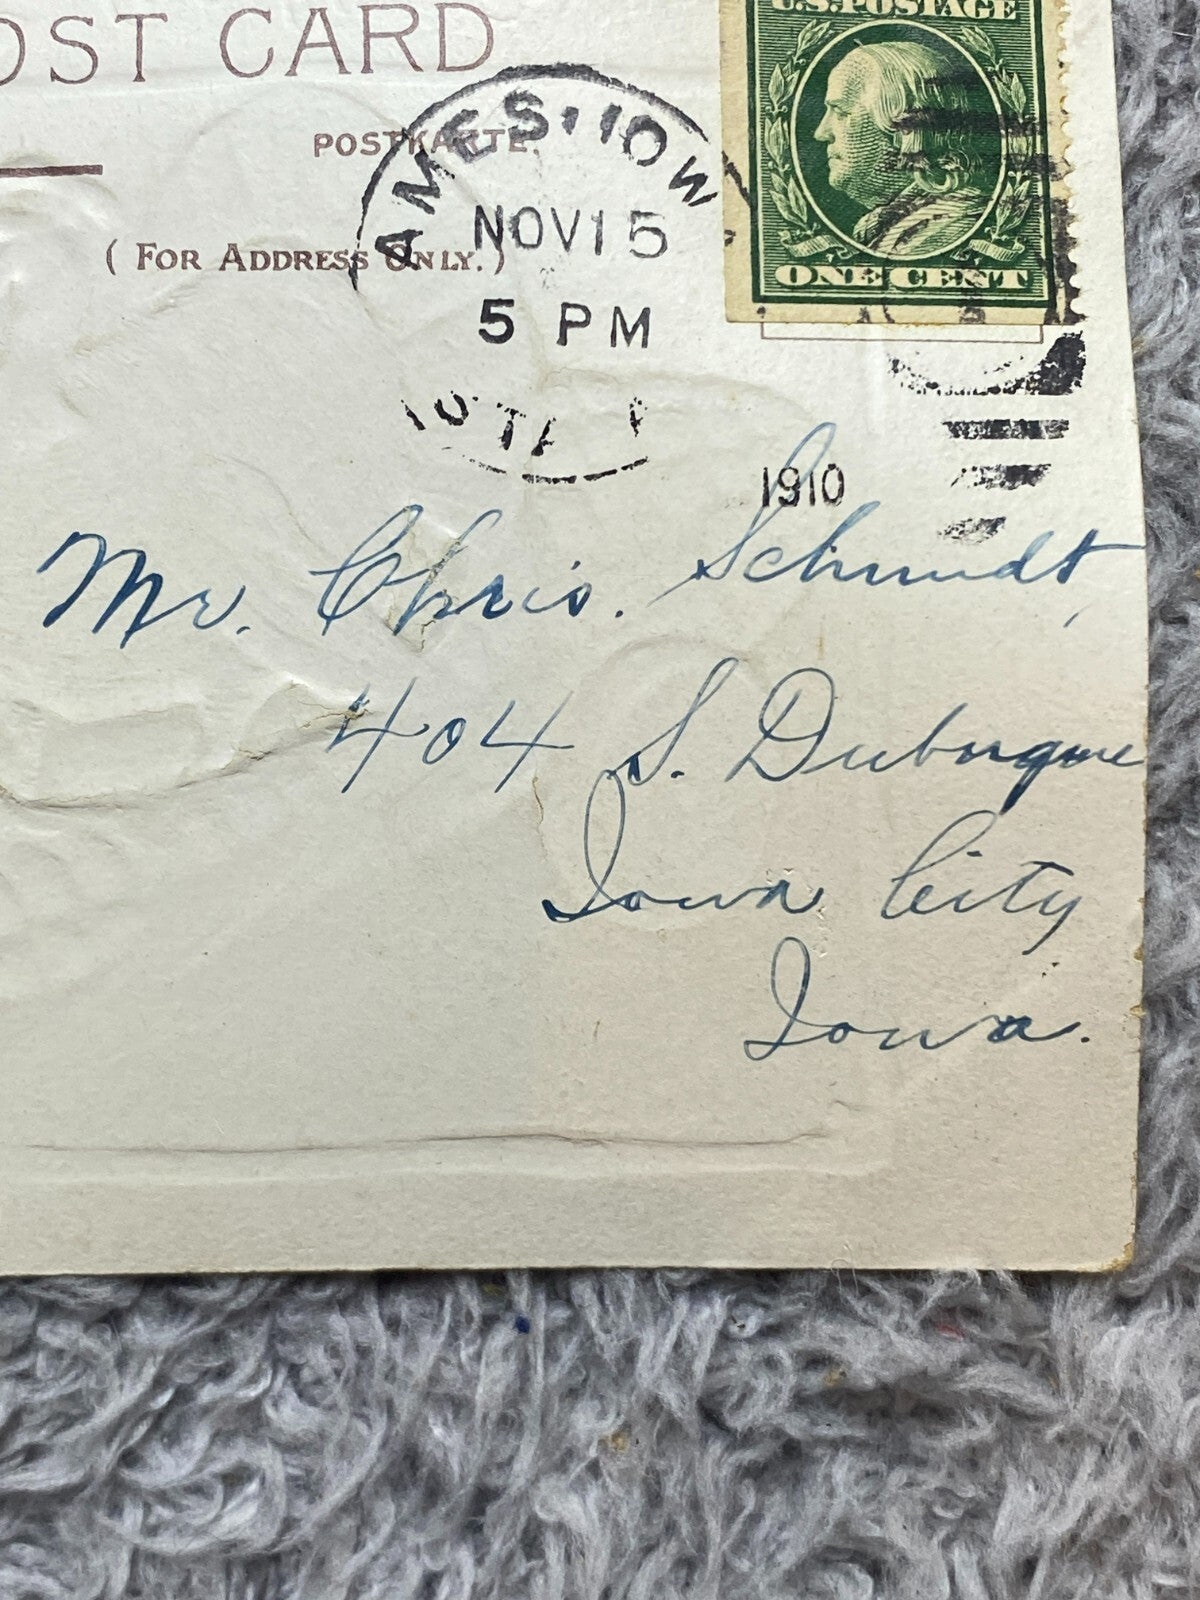 OST CARD
U.S. POSTAGE
POSTKARTE.
AMES, IOW
(FOR ADDRESS ONLY.)
NOV 15
5 PM
ONE CENT
1910
Mr. Chris. Schmidt,
404 S. Dubuque
Iowa City
Iowa.